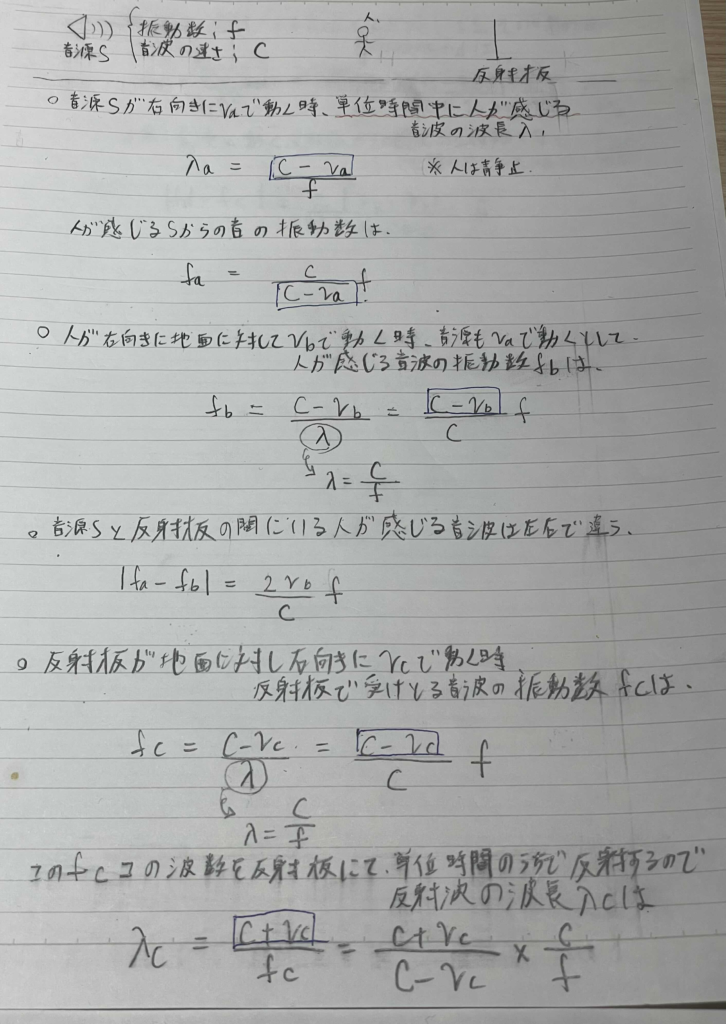 音源S { 振動数；f
音波の速さ；C
人
反射板
○ 音源Sが右向きにvaで動く時、単位時間中に人が感じる
音波の波長λ,
λa = (C - va) / f ※人は静止.
人が感じるSからの音の振動数は.
fa = C / (C - va) f.
○ 人が右向きに地面に対してvbで動く時、音源もvaで動くとして.
人が感じる音波の振動数fbは.
fb = (C - vb) / λ = (C - vb) / C f
λ = C / f
○ 音源Sと反射板の間にいる人が感じる音波は左右で違う.
|fa - fb| = 2vb / C f
○ 反射板が地面に対し右向きにvcで動く時
反射板で受けとる音波の振動数fcは.
fc = (C - vc) / λ = (C - vc) / C f
λ = C / f
このfcコの波数を反射板にて、単位時間のうちで反射するので
反射波の波長λcは
λc = (C + vc) / fc = (C + vc) / (C - vc) × C / f